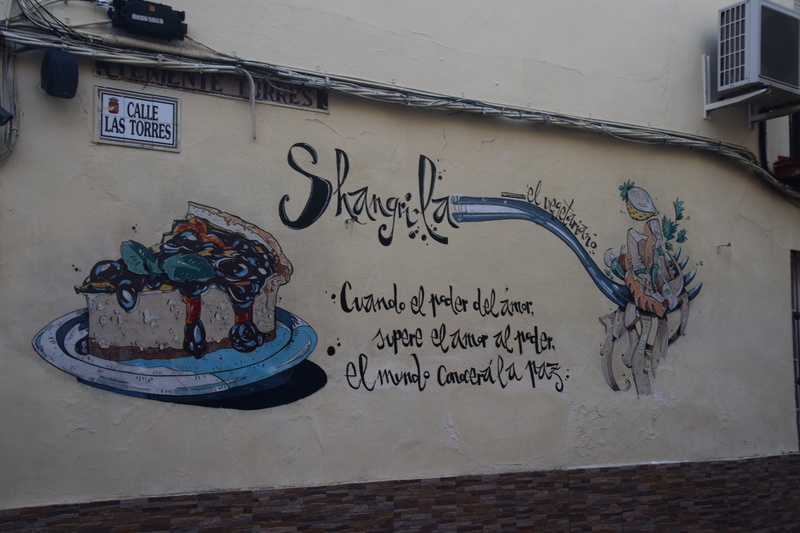 TENIENTE TORRES
CALLE
LAS TORRES
Shangri-la
el vegetariano
Cuando el poder del amor,
supere el amor al poder,
el mundo conocerá la paz.